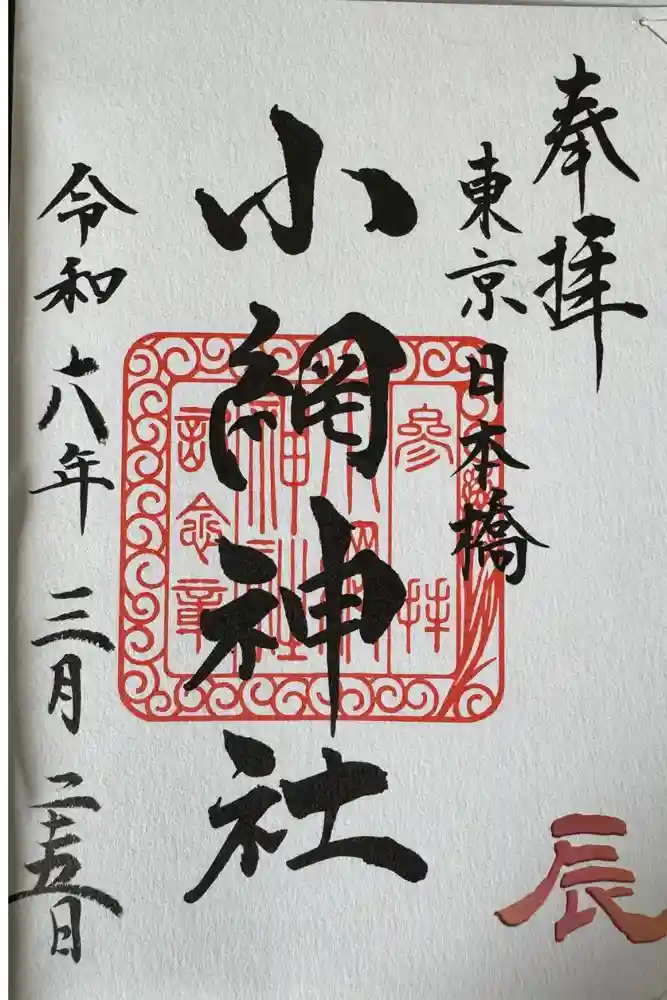 奉拝
東京日本橋
小網神社
令和六年三月二十五日
参拝
小網
神社
記念章
辰